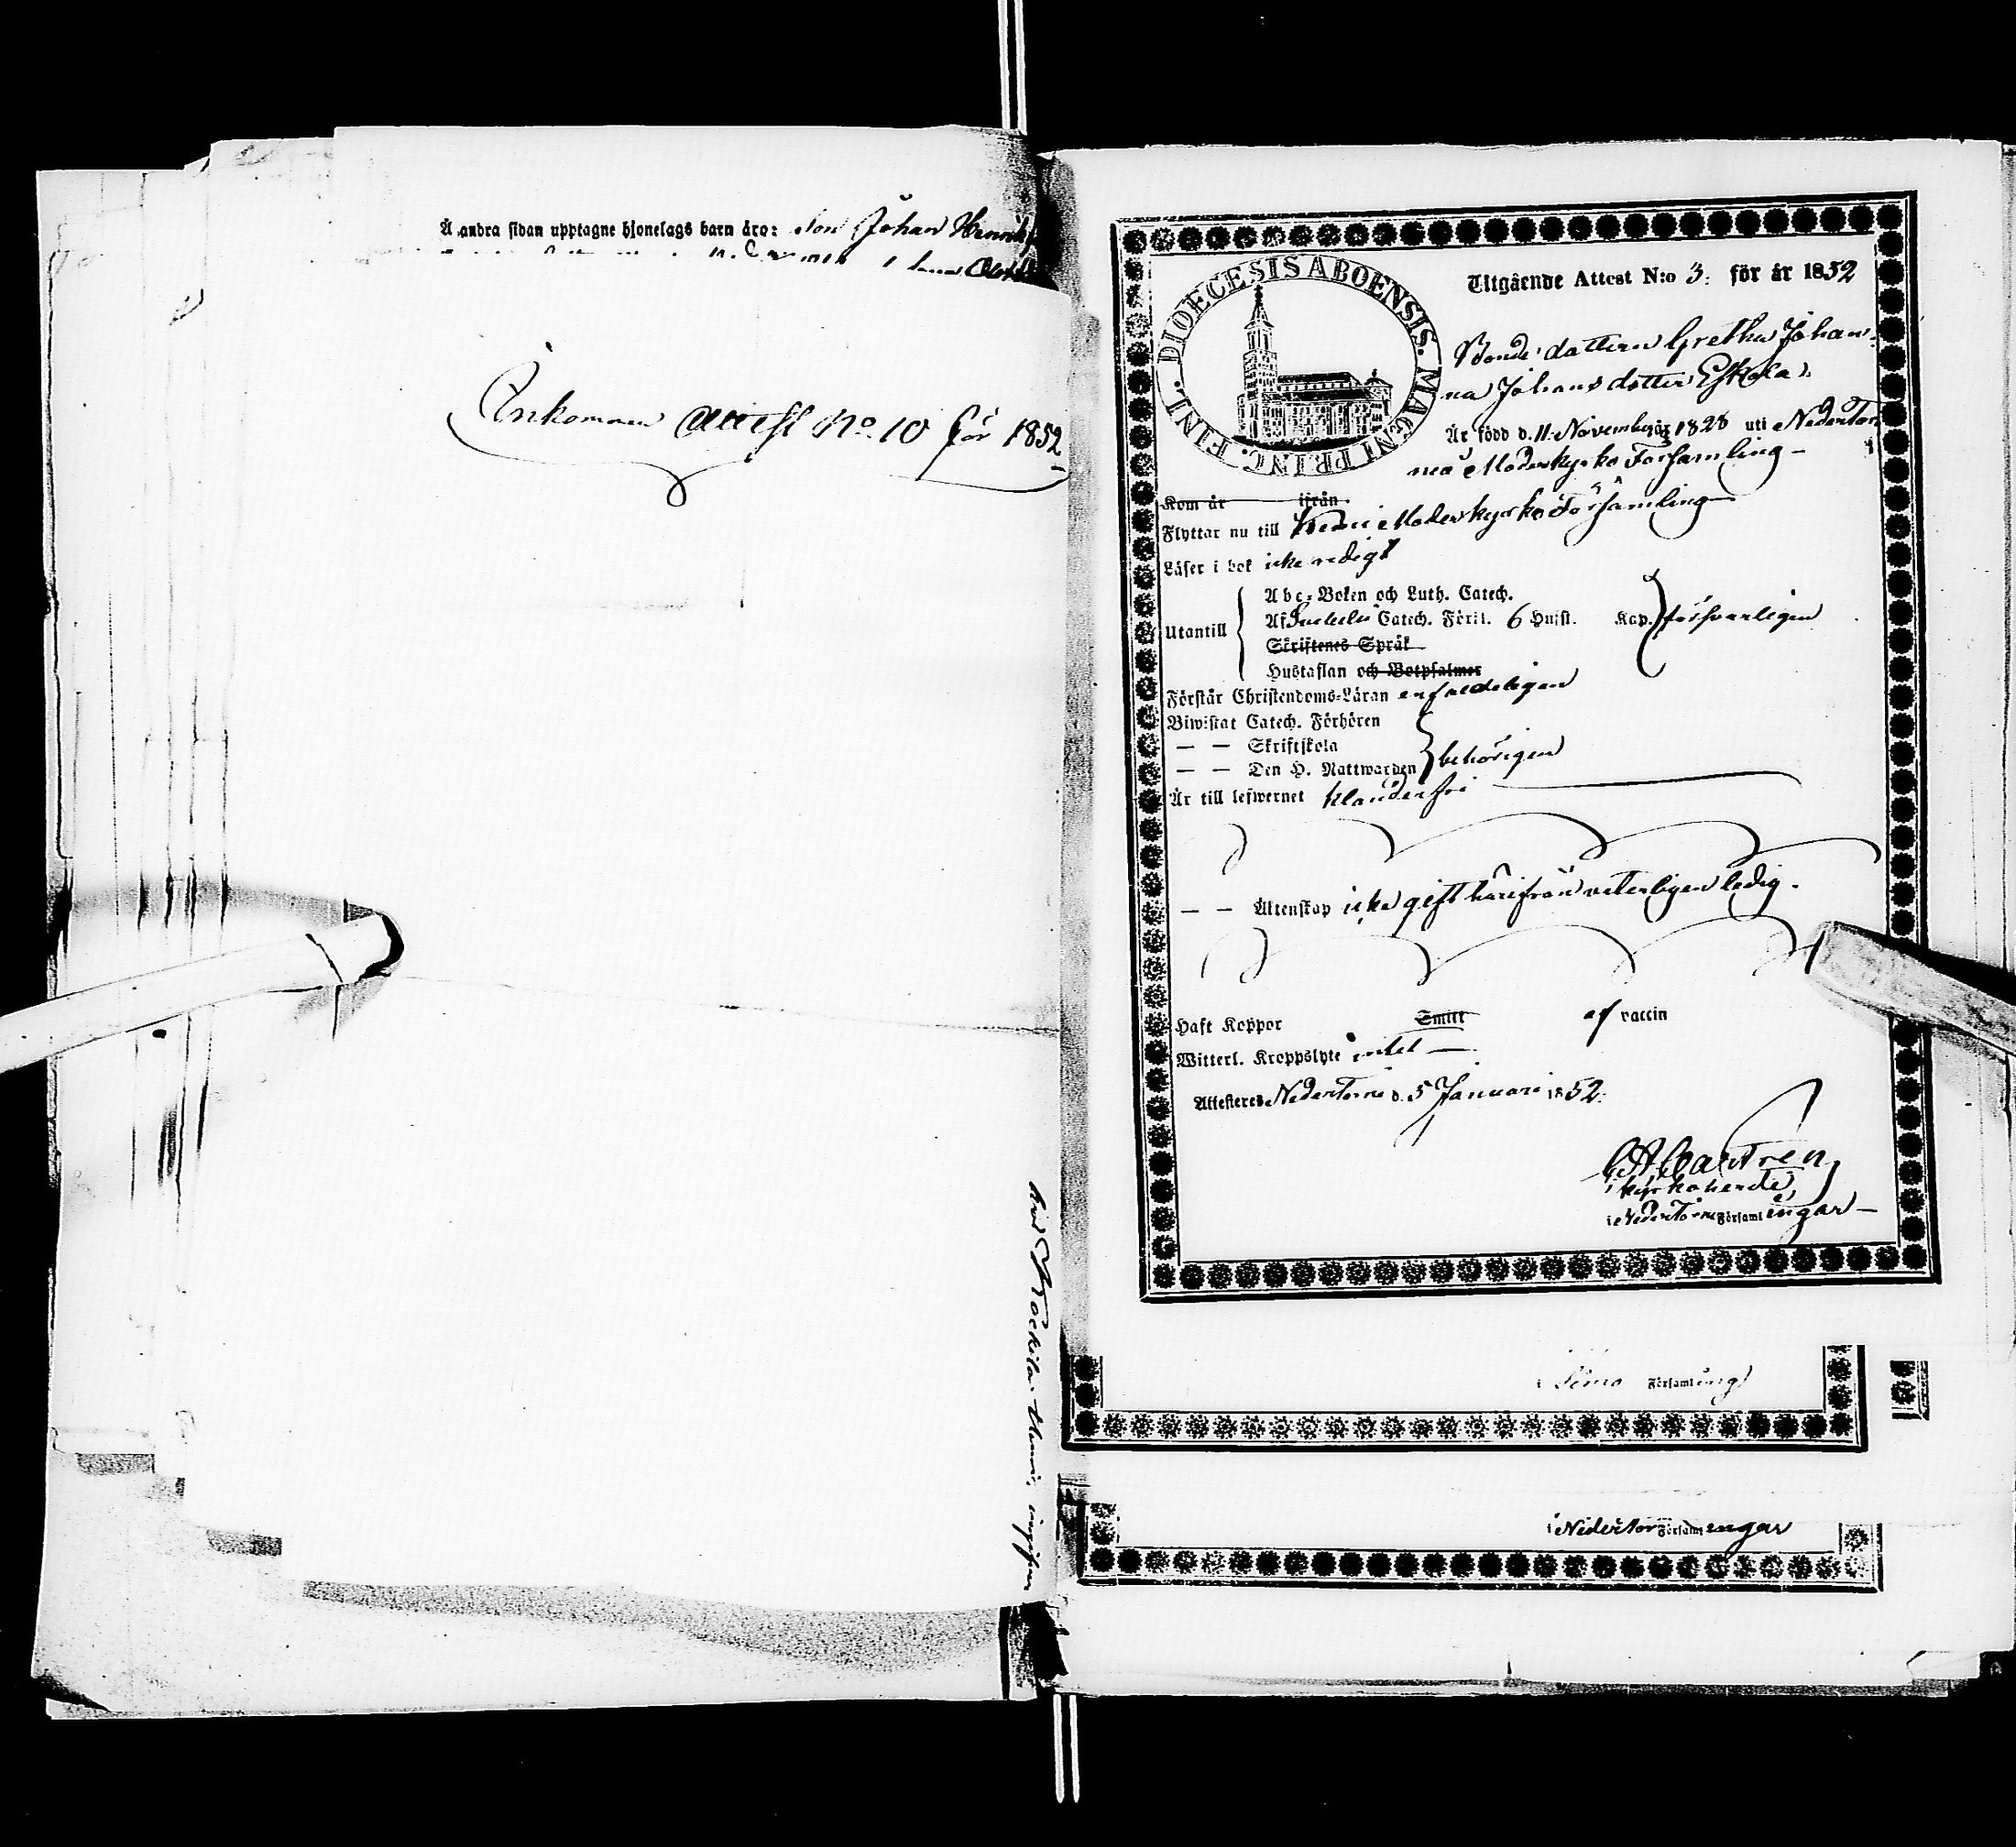 Å andra sidan upptagne hjonelags barn äro: son Johan Henrik
Ankommen Attest No. 10 för 1852
DIOECESIS ABOENSIS. MAGNI PRINC. FINL.
Utgående Attest N:o 3. för år 1852
Bonde dottern Gretha Johan-
na Johansdotter Eskola
Är född d. 11 November år 1828 uti Neder Tor-
neå Moderkyrko Församling
Kom år ifrån
Flyttar nu till Kemi Moderkyrko Församling
Läser i bok icke redigt
Abc-Boken och Luth. Catech.
Utantill Af Svebelii Catech. Förkl. 6 Hufst. Kap. försvarligen
Skriftenes Språk
Hustaflan och Botpsalmer
Förstår Christendoms-Läran enfaldeligen
Biwistat Catech. Förhören
— — Skriftskola
— — Den H. Nattwarden behörigen
Är till lefwernet klanderfri
— — Äktenskap icke gift härifrån veterligen ledig.
Haft Koppor Smitt af vaccin
Witterl. Kroppslyte intet —
Attesteres Neder Torneå d. 5 Januari 1852.
Castrén
kyrkoherde
i Neder Torneå Församlingar —
i Simo Församling
i Neder Torneå Församlingar